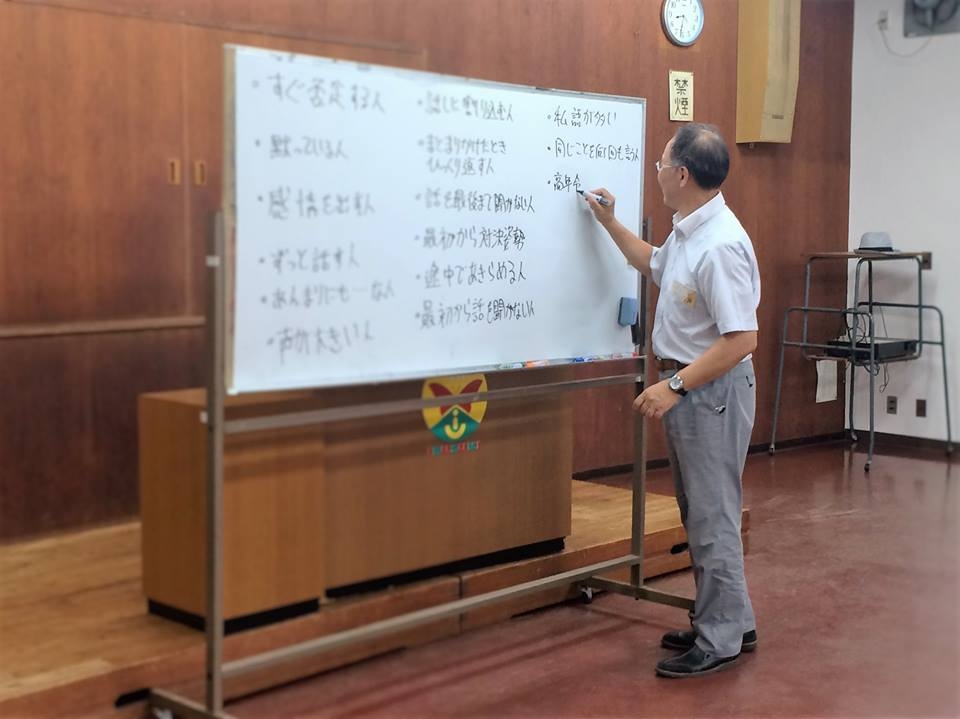 ・すぐ否定する人
・黙っている人
・感情を出す人
・ずっと話す人
・あんまりにも一な人
・声が大きい人
・話しに割り込む人
・まとまりかけたとき
ひっくり返す人
・話を最後まで聞かない人
・最初から対決姿勢
・途中であきらめる人
・最初から話を聞かない人
・私語が多い
・同じことを何回も言う人
・高年令
禁煙